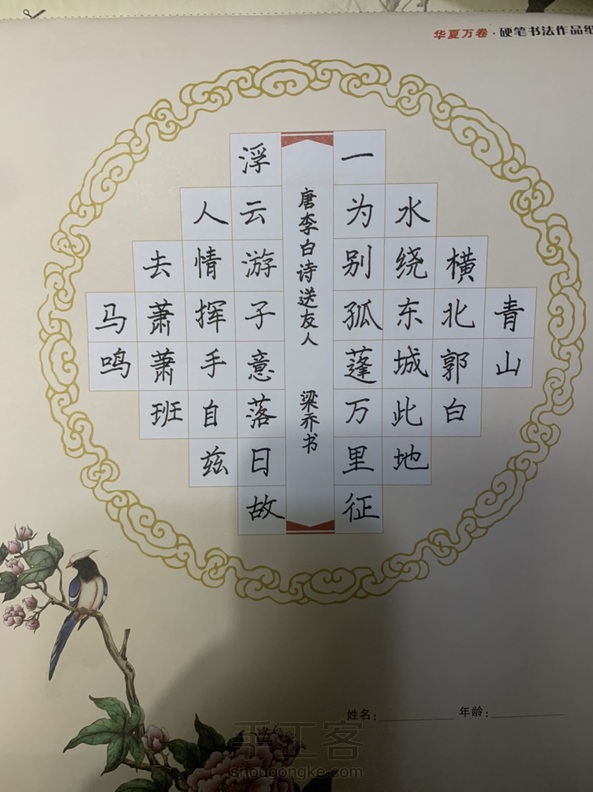 华夏万卷·硬笔书法作品纸
青山
横北郭白
水绕东城此地
一为别孤蓬万里征
唐李白诗送友人 梁乔书
浮云游子意落日故
人情挥手自兹
去萧萧班
马鸣
姓名： 年龄：
手工客
shougongke.com